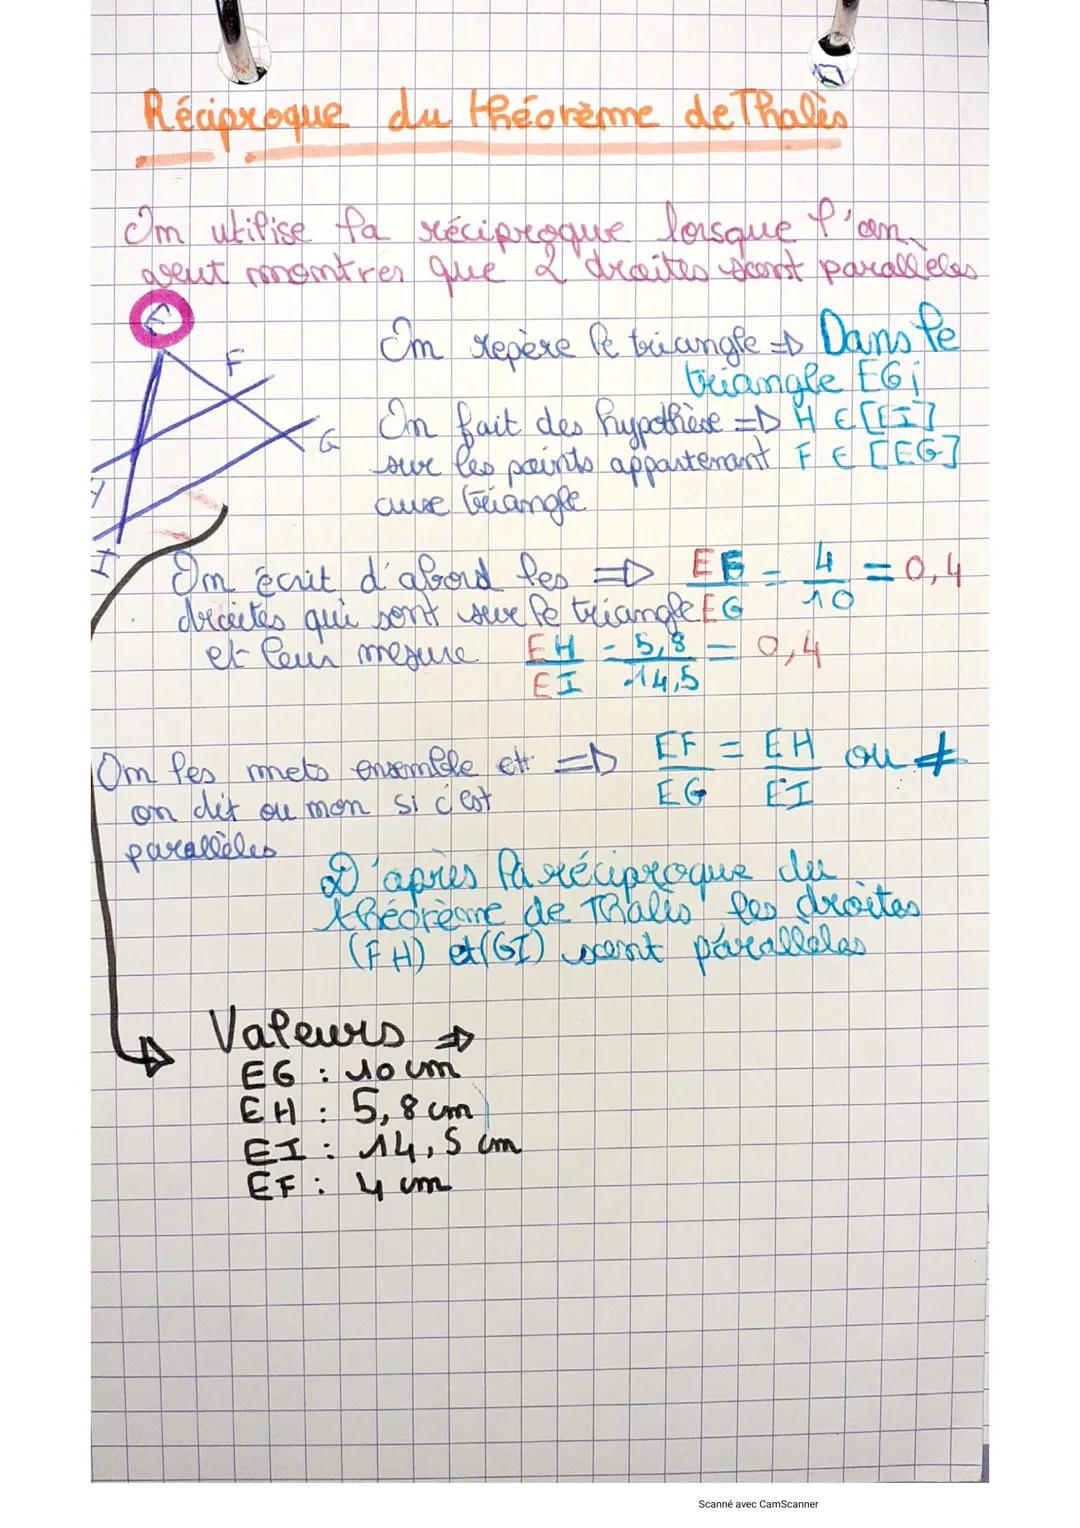 Réciproque du théorème de Thalès
On utilise la réciproque lorsque l'on
veut montrer que 2 droites sont parallèles
E
F
G
H
I
On repère le triangle => Dans le
triangle EGI
On fait des hypothèse => H ∈ [EI]
sur les points appartenant F ∈ [EG]
aux triangle
On écrit d'abord les => EF/EG = 4/10 = 0,4
droites qui sont sur le triangle
et leur mesure EH/EI = 5,8/14,5 = 0,4
On les mets ensemble et => EF/EG = EH/EI ou ≠
on dit ou non si c'est
parallèles
D'après la réciproque du
théorème de Thalès les droites
(FH) et (GI) sont parallèles
Valeurs =>
EG : 10 cm
EH : 5,8 cm
EI : 14,5 cm
EF : 4 cm
Scanné avec CamScanner